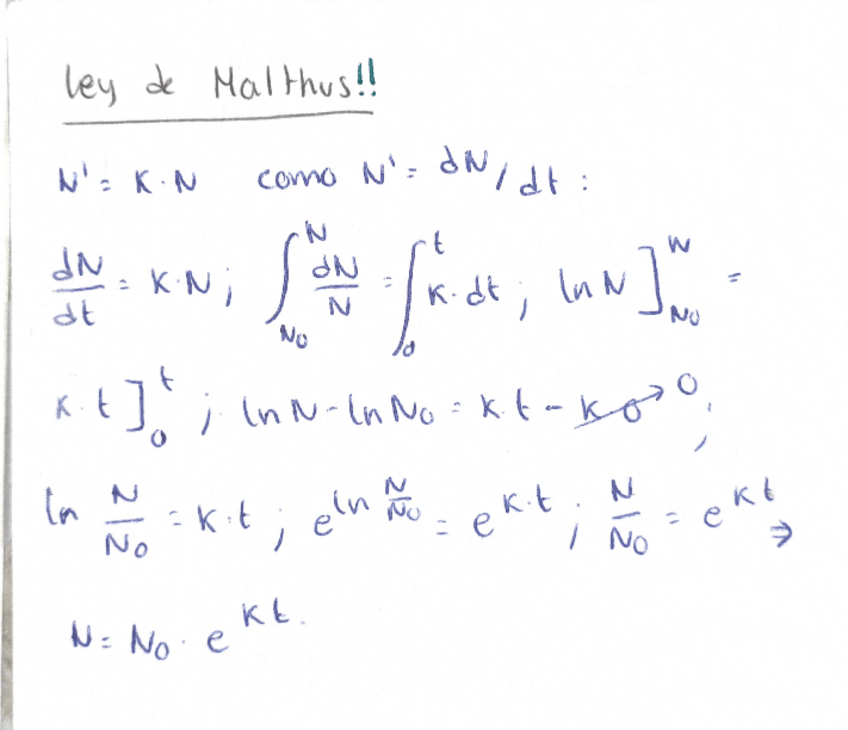 Ley de Malthus!!
N' = K·N como N' = dN/dt :
dN/dt = K·N ; ∫_{N0}^{N} dN/N = ∫_0^t K·dt ; ln N]_{N0}^{N} =
K·t]_0^t ; ln N - ln N0 = K·t - K·0→0 ;
ln N/N0 = K·t ; e^{ln N/N0} = e^{K·t} ; N/N0 = e^{Kt} ⇒
N = N0 · e^{Kt}.